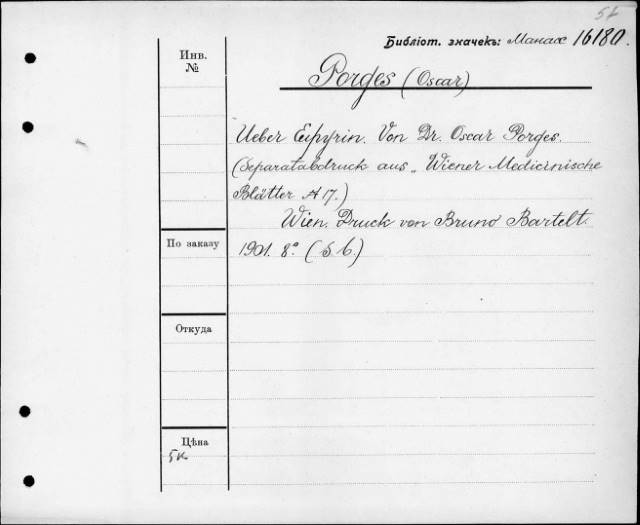 5к
Библіот. значекъ: Манах 16180.
Инв.
№
Porges (Oscar)
Ueber Eupyrin. Von Dr. Oscar Porges.
(Separatabdruck aus „Wiener Medicinische
Blätter № 17.)
Wien. Druck von Bruno Bartelt.
1901. 8° (S. 6.)
По заказу
Откуда
Цѣна
5к